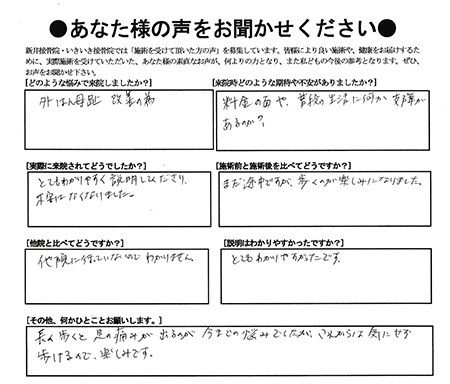 ●あなた様の声をお聞かせください●
新井接骨院・いきいき接骨院では「施術を受けて頂いた方の声」を募集しています。皆様により良い施術や、健康をお届けするた
めに、実際施術を受けていただいた、あなた様の素直なお声が、何よりの力となり、また私どもの今後の参考となります。ぜひ、
お声をお聞かせ下さい。
[どのような悩みで来院しましたか?]
外はん母趾 改善の為
[来院時どのような期待や不安がありましたか?]
料金の面や、普段の生活に何か支障が
あるのか?
[実際に来院されてどうでしたか?]
とてもわかりやすく説明してくださり、
不安はなくなりました。
[施術前と施術後を比べてどうですか?]
まだ途中ですが、歩くのが楽しみになりました。
[他院と比べてどうですか?]
他院に行っていないのでわかりません
[説明はわかりやすかったですか?]
とてもわかりやすかったです。
[その他、何かひとことお願いします。]
長く歩くと足の痛みが出るのが今までの悩みでしたが、これからは気にせず
歩けるので、楽しみです。